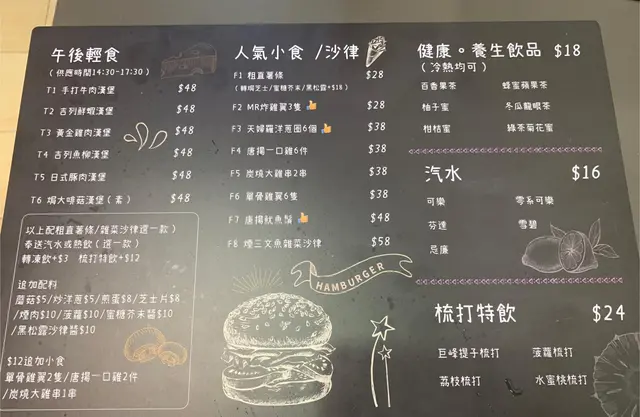 午後輕食
(供應時間14:30-17:30)
T1 手打牛肉漢堡 $48
T2 吉列鮮蝦漢堡 $48
T3 黃金雞肉漢堡 $48
T4 吉列魚柳漢堡 $48
T5 日式豚肉漢堡 $48
T6 焗大啡菇漢堡(素) $48
以上配粗直薯條/雜菜沙律選一款)
奉送汽水或熱飲(選一款)
轉凍飲+$3 梳打特飲+$12
追加配料
蘑菇$5/炒洋蔥$5/煎蛋$8/芝士片$8
/煙肉$10/菠蘿$10/蜜糖芥末醬$10
/黑松露沙律醬$10
$12追加小食
單骨雞翼2隻/唐揚一口雞2件
/炭燒大雞串1串
人氣小食 /沙律
F1 粗直薯條 $28
(轉焗芝士/蜜糖芥末/黑松露+$18)
F2 MR炸雞翼3隻 $28
F3 天婦羅洋蔥圈6個 $38
F4 唐揚一口雞6件 $38
F5 炭燒大雞串2串 $38
F6 單骨雞翼6隻 $38
F7 唐揚魷魚鬚 $48
F8 煙三文魚雜菜沙律 $58
HAMBURGER
健康。養生飲品 $18
(冷熱均可)
百香果茶 蜂蜜蘋果茶
柚子蜜 冬瓜龍眼茶
柑桔蜜 綠茶菊花蜜
汽水 $16
可樂 零系可樂
芬達 雪碧
忌廉
梳打特飲 $24
巨峰提子梳打 菠蘿梳打
荔枝梳打 水蜜桃梳打